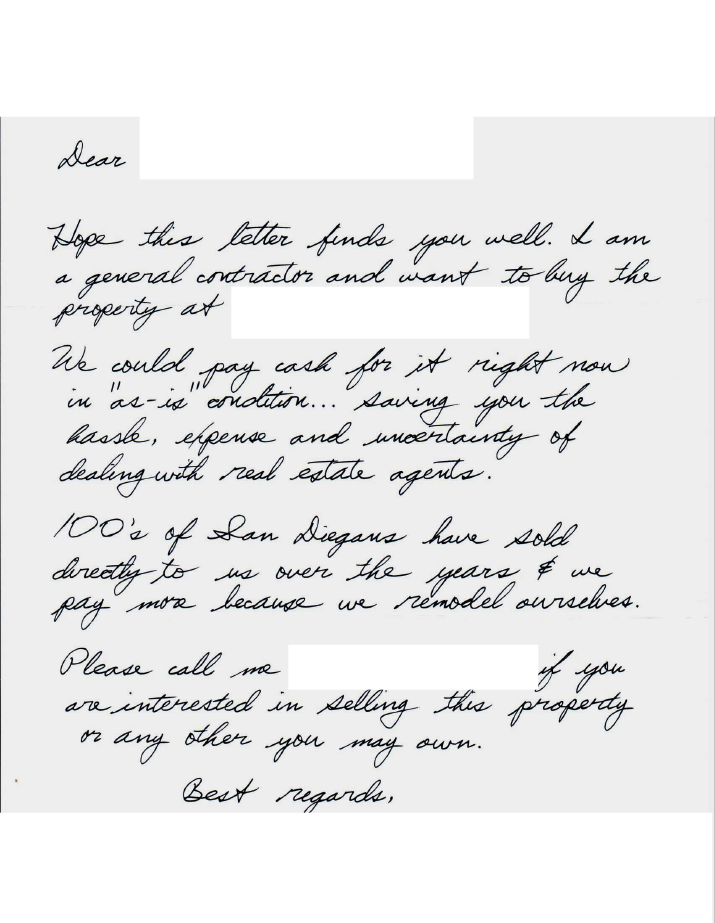 Dear
Hope this letter finds you well. I am
a general contractor and want to buy the
property at
We could pay cash for it right now
in "as-is" condition... saving you the
hassle, expense and uncertainty of
dealing with real estate agents.
100's of San Diegans have sold
directly to us over the years & we
pay more because we remodel ourselves.
Please call me if you
are interested in selling this property
or any other you may own.
Best regards,